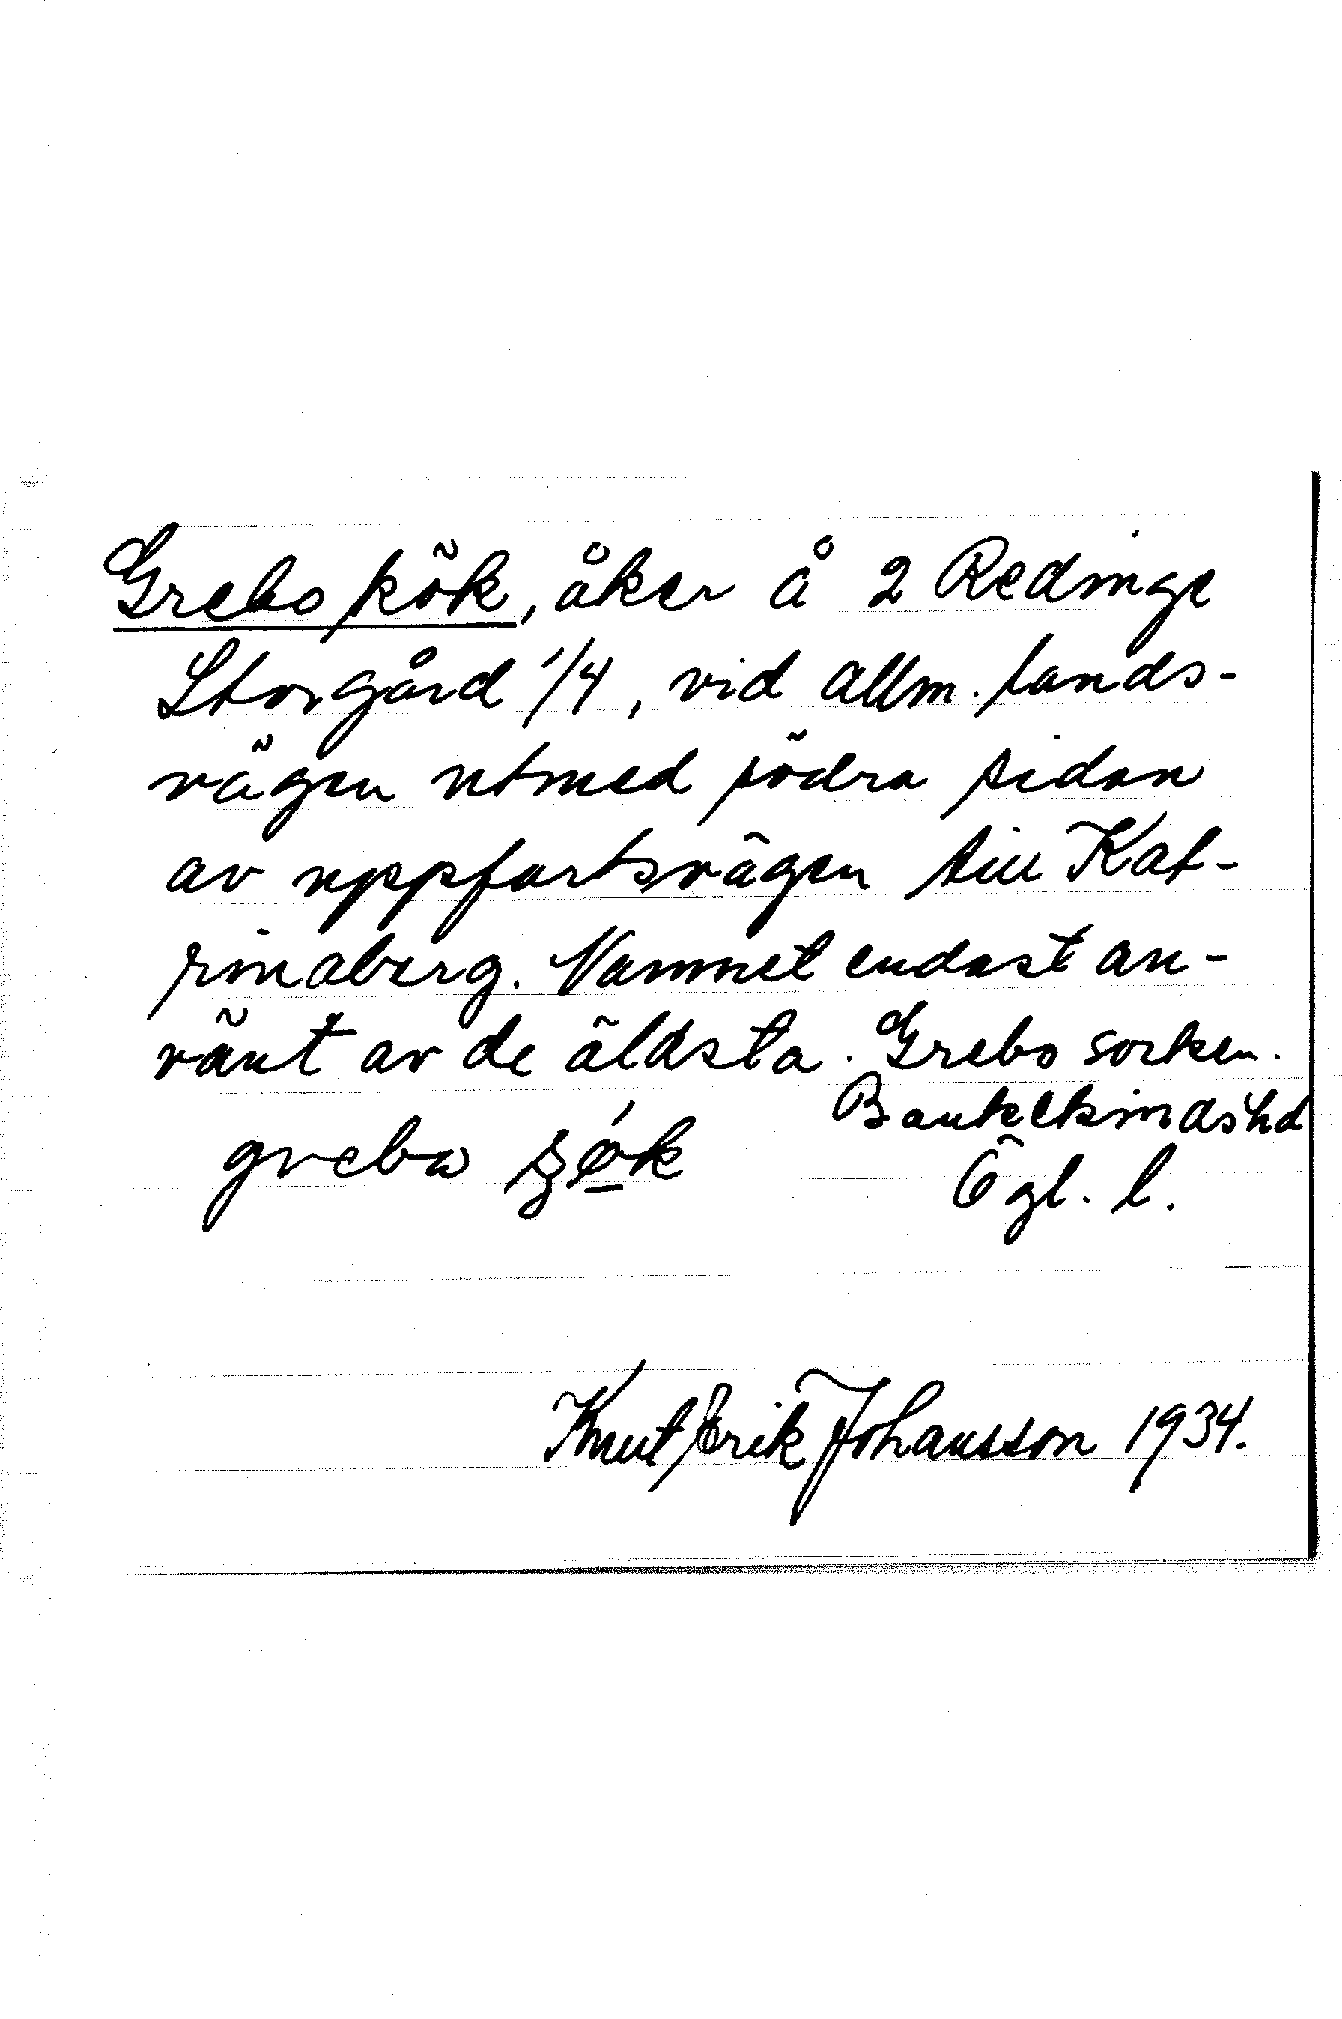 Grebo kök, åker å 2 Redinge
Storgård 1/4, vid allm. lands-
vägen utmed södra sidan
av uppfartsvägen till Kat-
rinaberg. Namnet endast an-
vänt av de äldsta. Grebo socken.
Bankekinds hd
grebω
Ögl. l.
Knut Erik Johansson 1934.